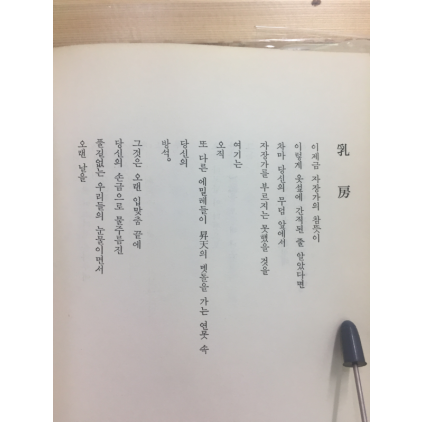 乳房
이제금 자장가의 참뜻이
이렇게 옷섶에 간직된 줄 알았다면
차마 당신의 무덤 앞에서
자장가를 부르지는 못했을 것을
여기는
오직
또 다른 에밀레들이 昇天의 멧돌을 가는 연못 속
당신의
방석.
그것은 오랜 입맞춤 끝에
당신의 손금으로 물주름진
풀길없는 우리들의 눈물이면서
오랜 날을